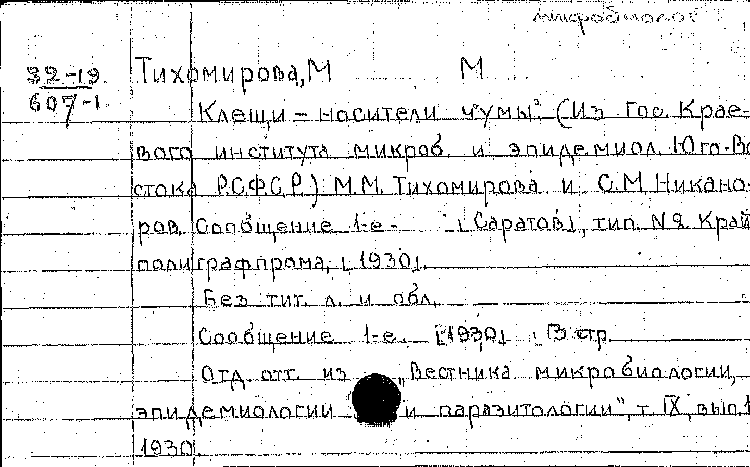 микробиолог
32-19 Тихомирова, М М
607-1
Клещи - носители чумы. (Из Гос. Крае-
вого института микроб. и эпидемиол. Юго-Во
стока Р.С.Ф.С.Р.) М.М. Тихомирова и С.М. Никано-
ров. Сообщение 1-е - [Саратов], тип. №2 Край
полиграфпрома, [1930].
Без тит. л. и обл.
Сообщение 1-е. [1930] стр.
Отд. отт. из "Вестника микробиологии,
эпидемиологии и паразитологии", т. IX, вып. 1
1930.